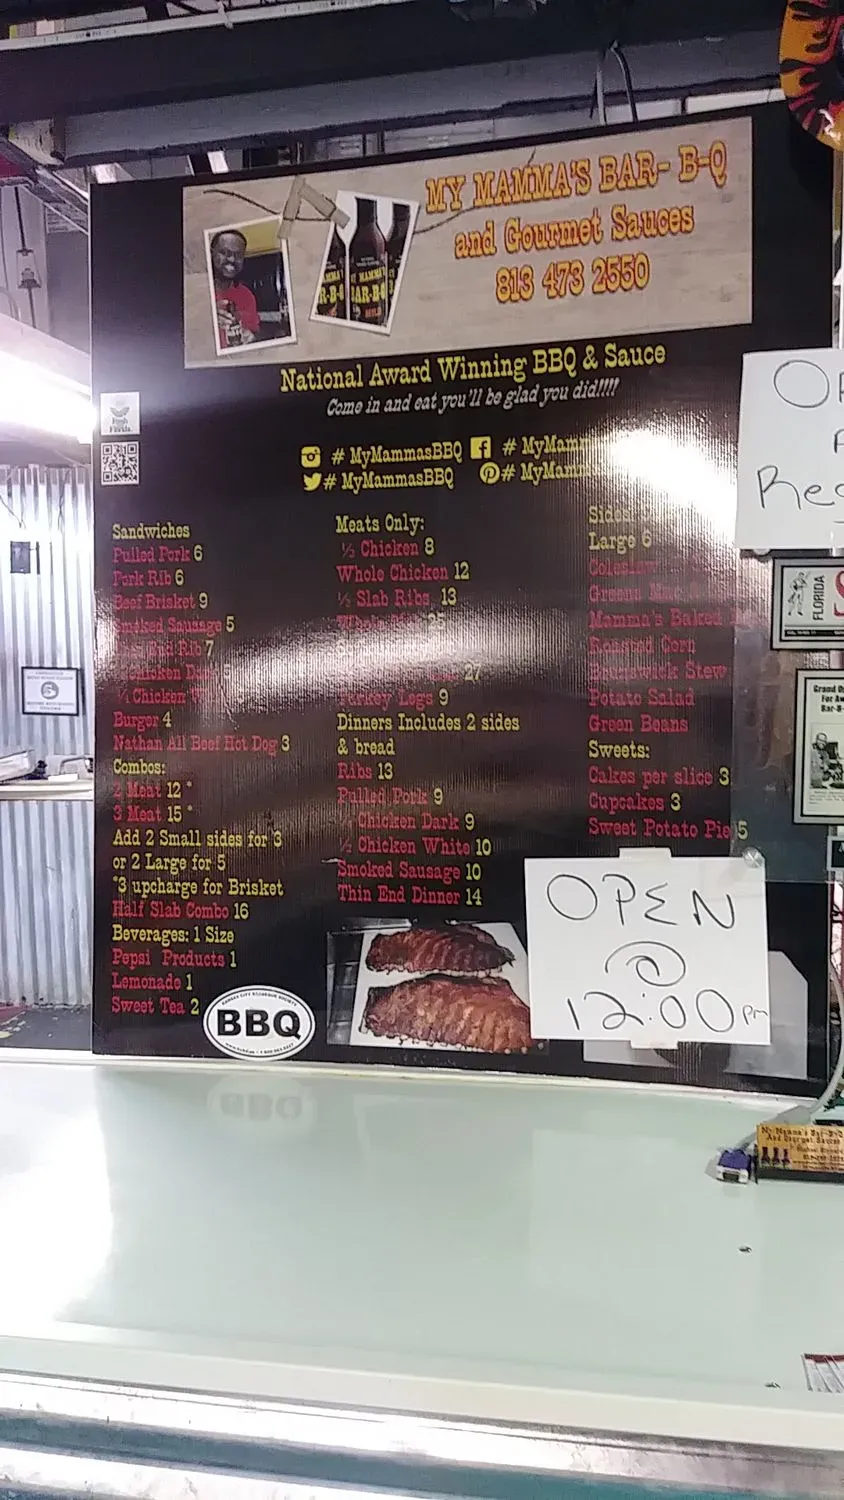 MY MAMMA'S BAR- B-Q
and Gourmet Sauces
813 473 2550
National Award Winning BBQ & Sauce
Come in and eat you'll be glad you did!!!!
# MyMammasBBQ
# MyMamm
# MyMammasBBQ
# MyMamm
Fresh
Florida
Sandwiches
Pulled Pork 6
Pork Rib 6
Beef Brisket 9
Smoked Sausage 5
End Rib 7
Chicken
Chicken W
Burger 4
Nathan All Beef Hot Dog 3
Combos:
2 Meat 12 *
3 Meat 15 *
Add 2 Small sides for 3
or 2 Large for 5
*3 upcharge for Brisket
Half Slab Combo 16
Beverages: 1 Size
Pepsi Products 1
Lemonade 1
Sweet Tea 2
Meats Only:
½ Chicken 8
Whole Chicken 12
½ Slab Ribs 13
27
Turkey Legs 9
Dinners Includes 2 sides
& bread
Ribs 13
Pulled Pork 9
Chicken Dark 9
Chicken White 10
Smoked Sausage 10
Thin End Dinner 14
Sides
Large 6
Coleslaw
Greens Mac
Mamma's Baked
Roasted Corn
Brunswick Stew
Potato Salad
Green Beans
Sweets:
Cakes per slice 3
Cupcakes 3
Sweet Potato Pie 5
BBQ
OPEN
@
12:00pm
Reg
FLORIDA
Grand
For Aw
Bar-B-
My Mamma's Bar-B-Q
And Gourmet Sauces